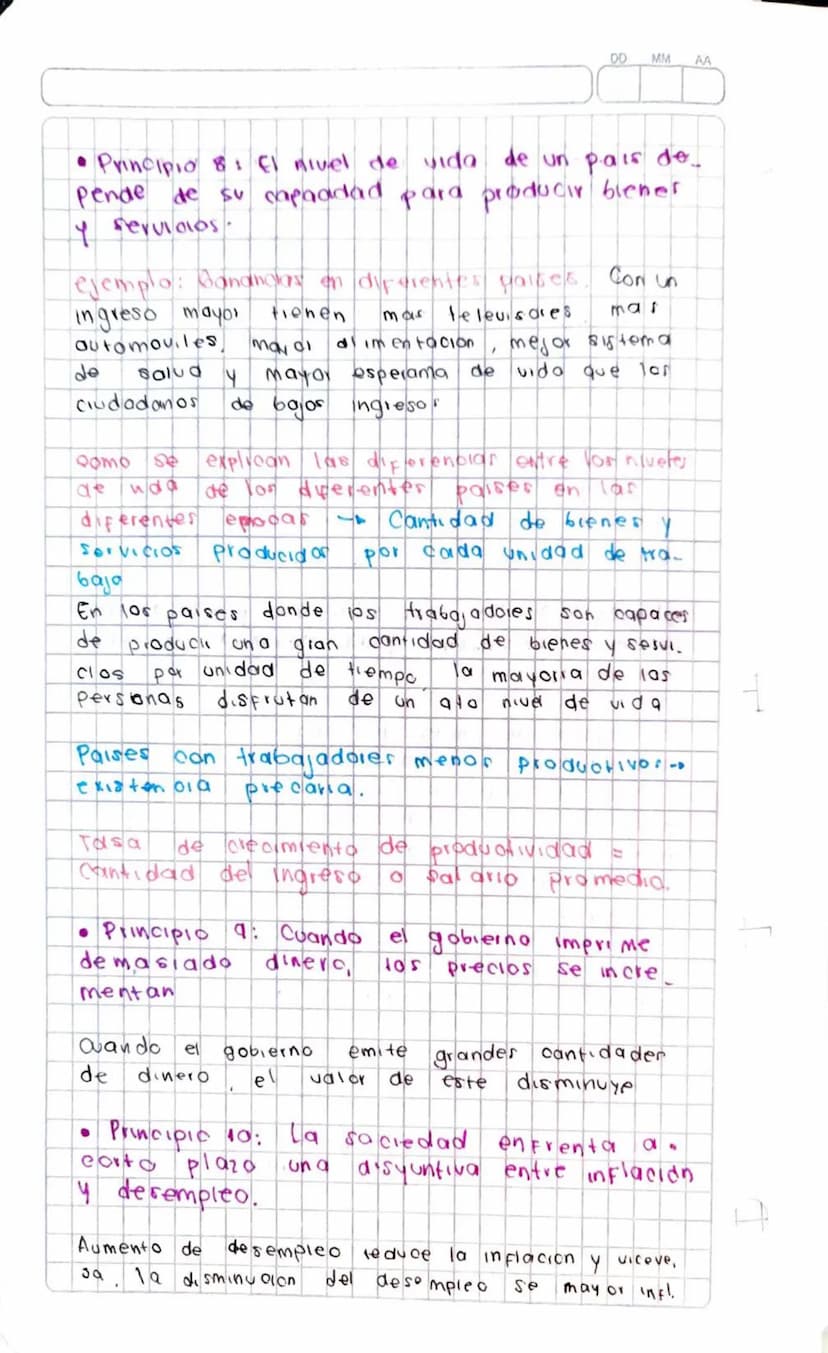 DD MM AA
• Principio 8: El nivel de vida de un pais de-
pende de su capacidad para producir bienes
y servicios.
ejemplo: Ganancias en diferentes paises. Con un
ingreso mayor tienen mas televisores mas
automoviles, mayor alimentacion, mejor sistema
de salud y mayor esperanza de vida que los
ciudadanos de bajos ingresos
como se explican las diferencias entre los niveles
de vida de los diferentes paises en las
diferentes epocas → Cantidad de bienes y
servicios producidos por cada unidad de tra-
bajo
En los paises donde los trabajadores son capaces
de producir una gran cantidad de bienes y servi-
cios por unidad de tiempo la mayoria de las
personas disfrutan de un alto nivel de vida
Paises con trabajadores menos productivos →
existencia precaria.
Tasa de crecimiento de productividad =
Cantidad del ingreso o salario promedio.
• Principio 9: Cuando el gobierno imprime
demasiado dinero, los precios se incre-
mentan
Cuando el gobierno emite grandes cantidades
de dinero, el valor de este disminuye
• Principio 10: La sociedad enfrenta a
corto plazo una disyuntiva entre inflación
y desempleo.
Aumento de desempleo reduce la inflacion y viceve,
sa. la disminucion del desempleo se mayor infl.